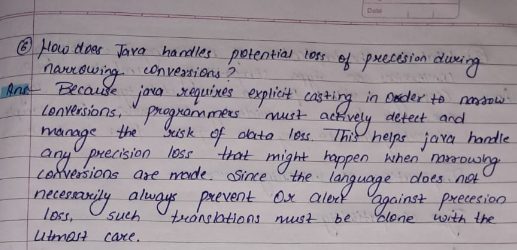 Date
⑥ How does Java handles potential loss of precesion during
narrowing conversions?
Ans- Because java requires explicit casting in order to narrow
conversions, programmers must actively detect and
manage the risk of data loss. This helps java handle
any precision loss that might happen when narrowing
conversions are made. Since the language does not
necessarily always prevent or alert against precesion
loss, such translations must be done with the
utmost care.